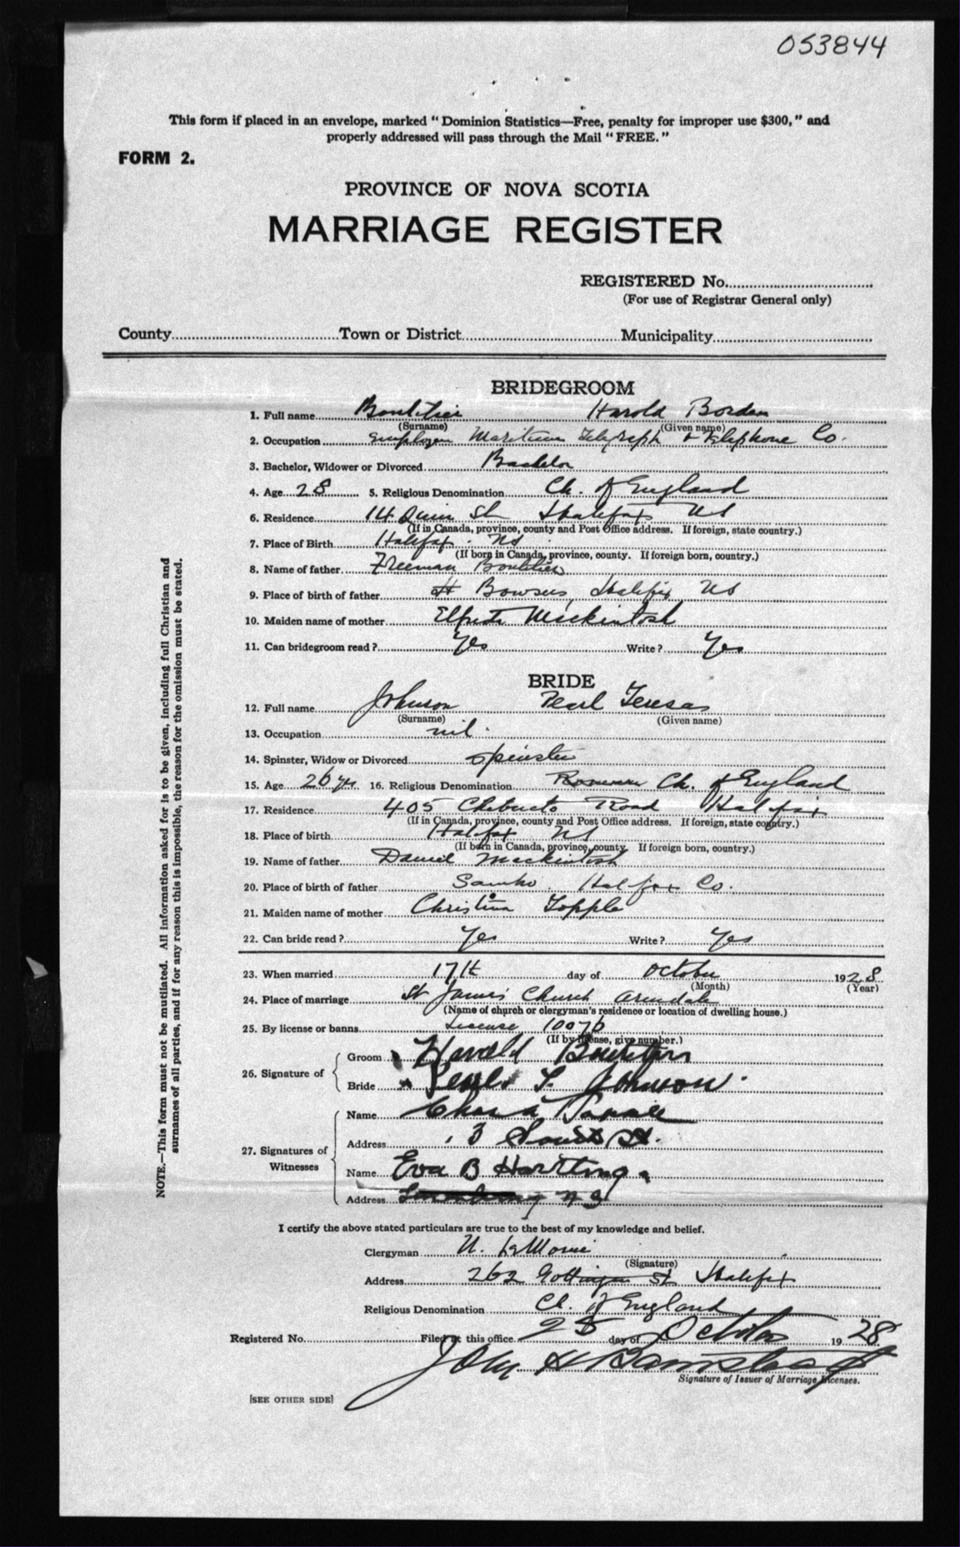 053844
This form if placed in an envelope, marked "Dominion Statistics—Free, penalty for improper use $300," and
properly addressed will pass through the Mail "FREE."
FORM 2.
PROVINCE OF NOVA SCOTIA
MARRIAGE REGISTER
REGISTERED No.
(For use of Registrar General only)
County Town or District Municipality
BRIDEGROOM
1. Full name Boutilier Harold Borden
(Surname) (Given name)
2. Occupation employee Maritime Telegraph & Telephone Co.
3. Bachelor, Widower or Divorced Bachelor
4. Age 28 5. Religious Denomination Ch. of England
6. Residence 14 St Halifax NS
(If in Canada, province, county and Post Office address. If foreign, state country.)
7. Place of Birth Halifax NS
(If born in Canada, province, county. If foreign born, country.)
8. Name of father Freeman Boutilier
9. Place of birth of father Halifax NS
10. Maiden name of mother Mackintosh
11. Can bridegroom read? Yes Write? Yes
BRIDE
12. Full name Johnson Pearl Teresa
(Surname) (Given name)
13. Occupation nil.
14. Spinster, Widow or Divorced Spinster
15. Age 26 yrs 16. Religious Denomination Ch. of England
17. Residence 405 Chebucto Road Halifax
(If in Canada, province, county and Post Office address. If foreign, state country.)
18. Place of birth Halifax NS
(If born in Canada, province, county. If foreign born, country.)
19. Name of father Daniel Mackintosh
20. Place of birth of father Sambro. Halifax Co.
21. Maiden name of mother Christina
22. Can bride read? Yes Write? Yes
23. When married 17th day of October 1928
(Month) (Year)
24. Place of marriage St James Church Armdale
(Name of church or clergyman's residence or location of dwelling house.)
25. By license or banns License 10076
(If by license, give number.)
26. Signature of
Groom Harold Boutilier
Bride Pearl T. Johnson.
27. Signatures of
Witnesses
Name Chas
Address St.
Name Eva B Harting
Address N S
NOTE.—This form must not be mutilated. All information asked for is to be given, including full Christian and
surnames of all parties, and if for any reason this is impossible, the reason for the omission must be stated.
I certify the above stated particulars are true to the best of my knowledge and belief.
Clergyman N. LeMoine
(Signature)
Address 262 Gottingen St Halifax
Religious Denomination Ch. of England
Registered No. Filed at this office 25 day of October 1928
John H
Signature of Issuer of Marriage Licenses.
[SEE OTHER SIDE]